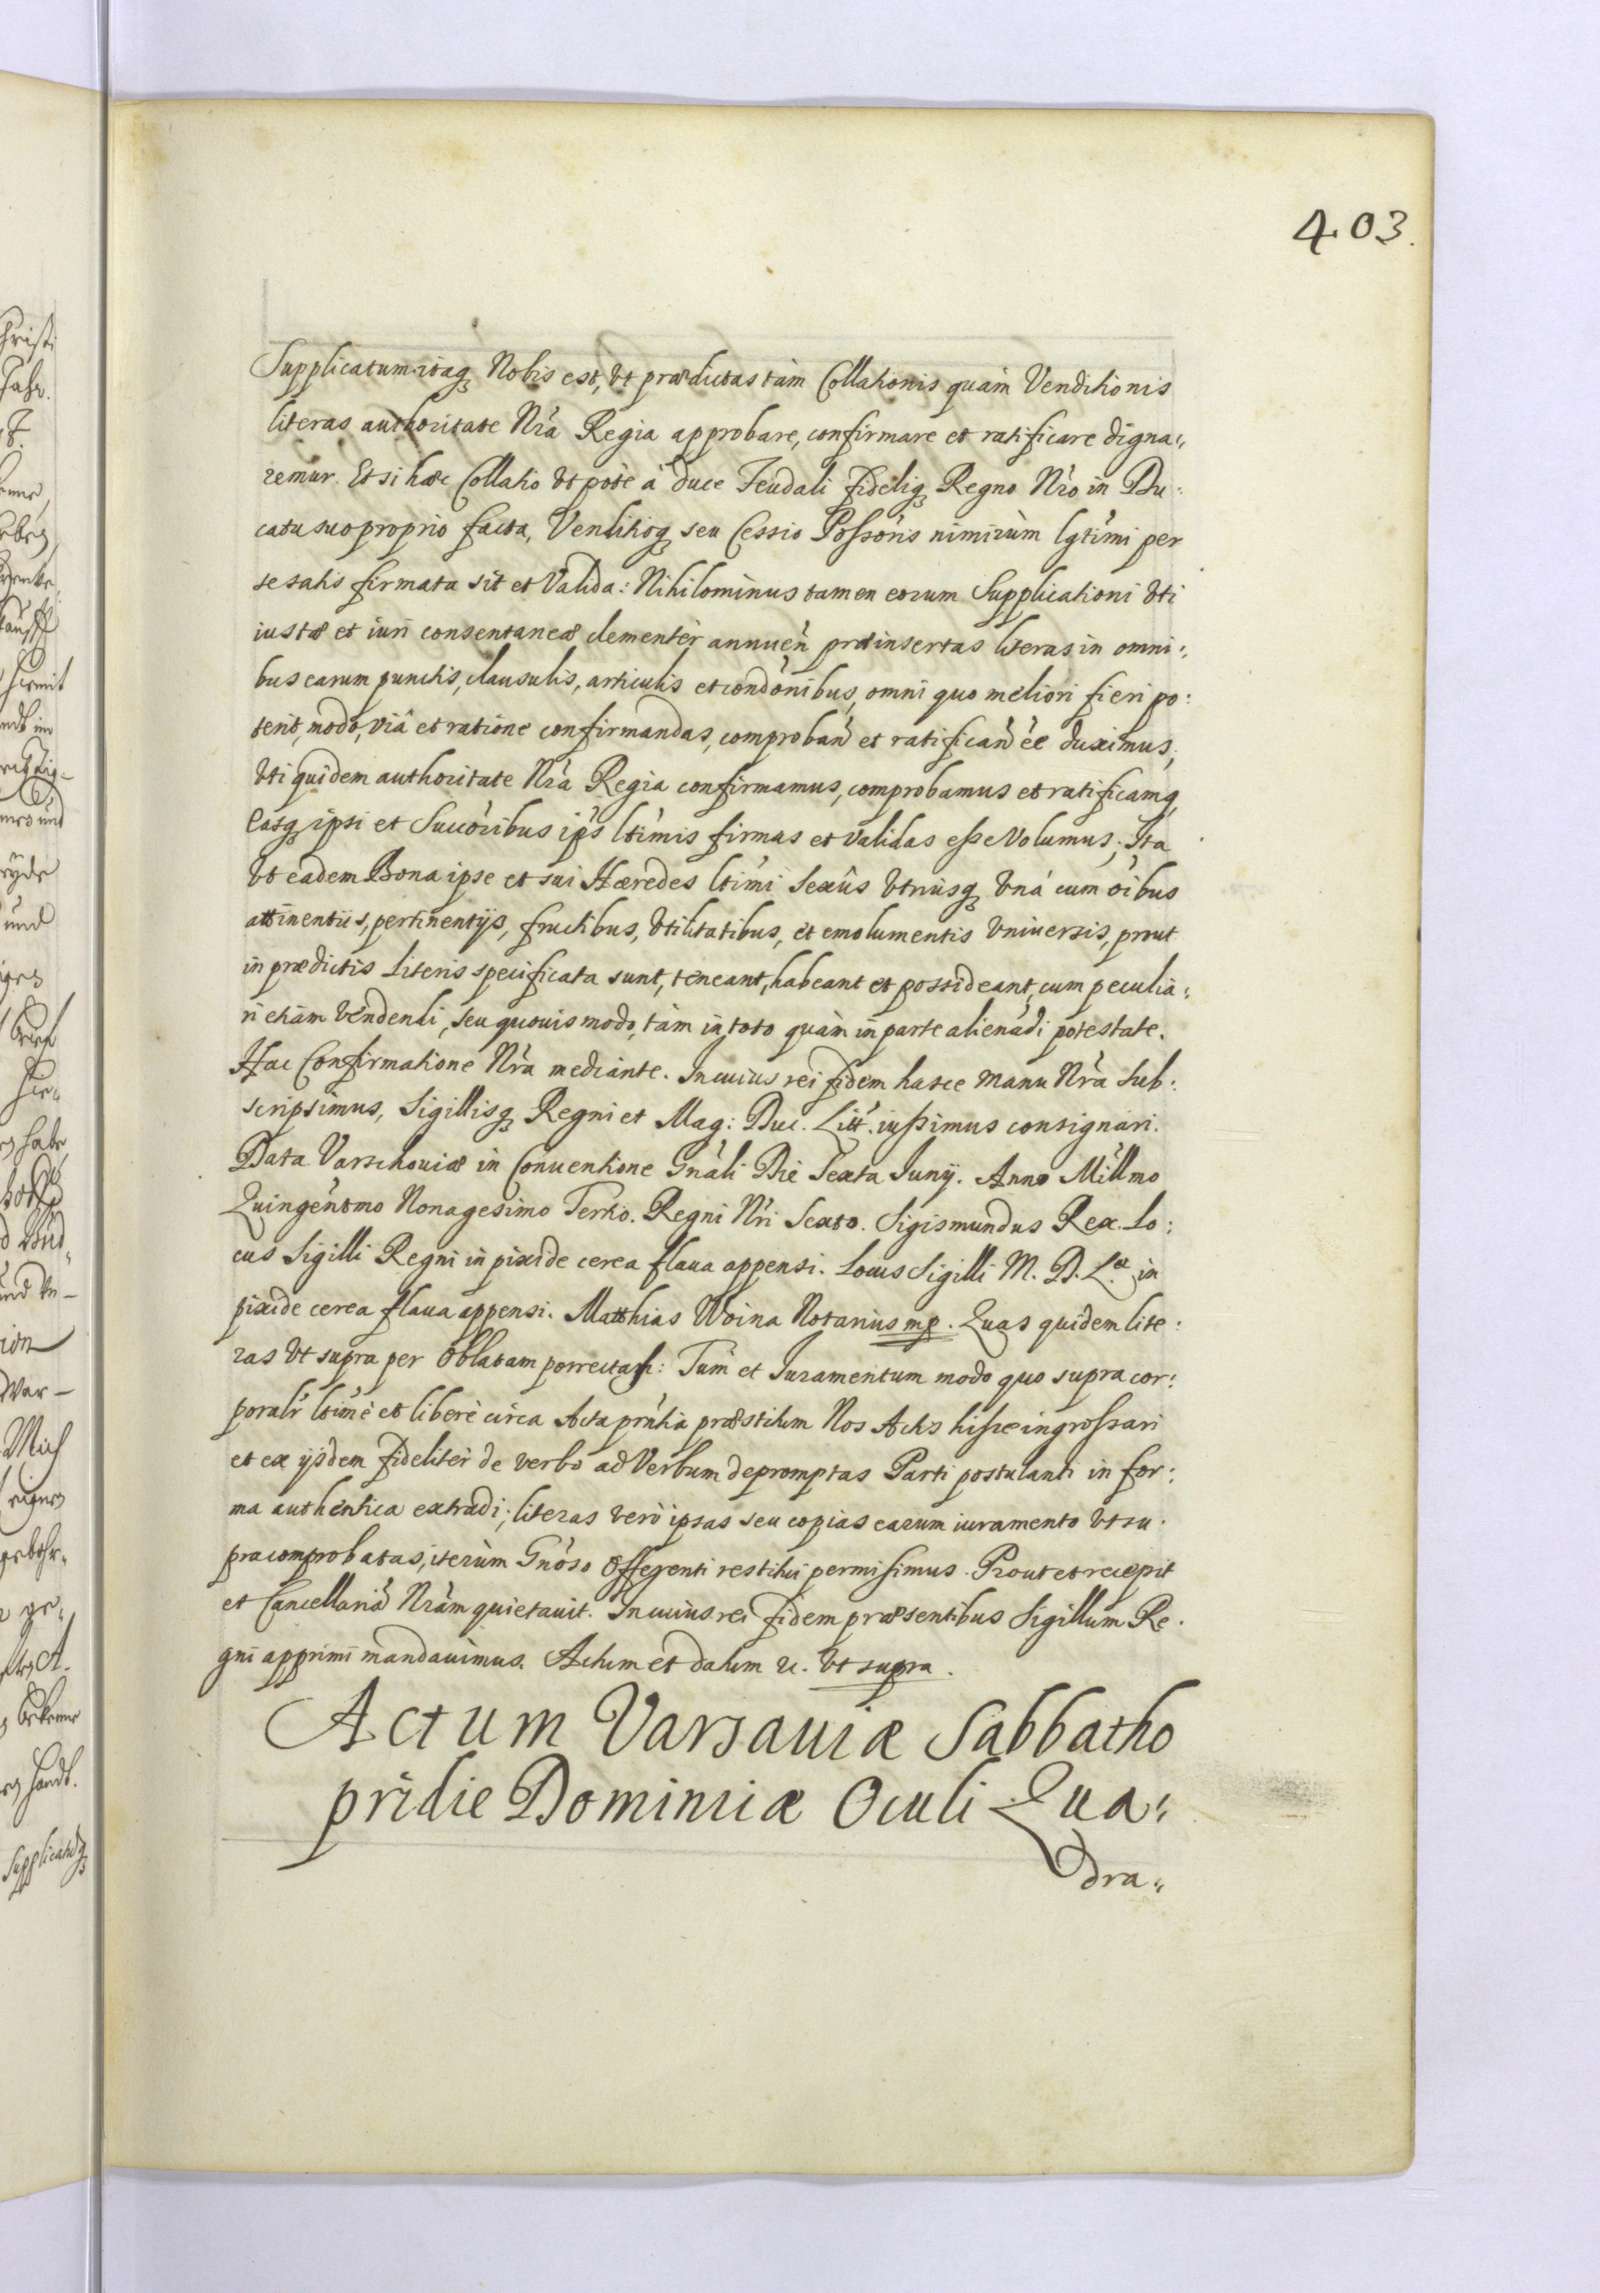 403.
Supplicatum itaq Nobis est, Vt prædictas tàm Collationis quàm Venditionis
literas authoritate Nrà Regia approbare, confirmare et ratificare digna:,
remur. Et si hæc Collatio Vt potè à duce Feudali fidéliq Regno Nrò in Du:
catu suo proprio facta, Venditioq seu Cessio Possóris nimirùm lgtími per
se satis firmata sit et Valida: Nihilominus tamen eorum Supplicationi Vti
iustæ et iuri consentaneæ clementèr annuen̄ præinsertas literas in omni:,
bus earum punctis, clausulis, articulis et condónibus, omni quo meliori fieri po:
terit, modo, viâ et ratione confirmandas, comproban̄ et ratifican̄ ée duximus,
Vti quidem authoritate Nrà Regia confirmamus, comprobamus et ratificamq,
Easq ipsi et Succóribus ips̀ ltímis firmas et validas esse Volumus; Ita
Vt eadem Bona ipse et sui Hæredes ltími Sexûs Vtriusq Vná cum óibus
attinentiis, pertinentijs, fructibus, Vtilitatibus, et emolumentis Vniuersis, prout
in prædictis Literis specificata sunt, teneant, habeant et possideant, cum peculia:,
ri etiàm Vendendi, seu quouis modo, tàm in toto quàm in parte alienádi potestate.
Hac Confirmatione Nrà mediante. In cuius rei fidem hasce manu Nrà Sub:
scripsimus, Sigillisq Regni et Mag: Duc. Litt́. iussimus consignari.
Data Varschouiæ in Conuentione Gnáli Die Sexta Junij. Anno Míllmo
Quingéntmo Nonagesimo Tertio. Regni Nri Sexto. Sigismundus Rex. Lo:
cus Sigilli Regni in pixide cerea flaua appensi. Locus Sigilli M. D. L.æ in
pixide cerea flaua appensi. Matthias Woina Notarius mp. Quas quidem lite:
ras Vt supra per Oblatam porrectas: Tùm et Juramentum modo quo supra cor:
poralr ltímè et liberè circa Acta prńtia præstitum Nos Actis hisce ingrossari
et ex ijsdem fidelitèr de verbo ad Verbum depromptas Parti postulanti in for:
ma authentica extradi; literas verò ipsas seu copias earum iuramento Vt su.
pra comprobatas, iterùm Gnóso Offerenti restitui permisimus. Prout et recepit
et Cancellariá Nràm quietauit. In cuius rei fidem præsentibus Sigillum Re.
gni apprimi mandauimus. Actum et datum rc. Vt supra.
Actum Varsauiæ Sabbatho
pridie Dominicæ Oculi Qua:,
dra:,